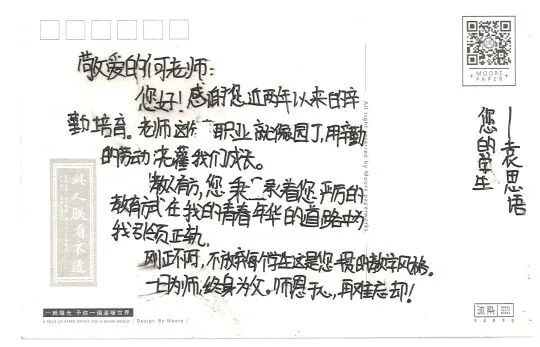 敬爱的何老师:
您好!感谢您近两年以来的辛
勤培育。老师这份职业就像园丁,用辛勤
的劳动浇灌我们成长。
教以有方,您秉承着您严厉的
教育方式在我的青春年华的道路中为
我引领正轨。
刚正不阿,不放弃每个学生这是您一贯的教学风格。
一日为师,终身为父。师恩于心,再难忘却!
您的学生
—袁思语
MOORE
PAPER
All rights reserved by Moore paperworks
此人朕看不透
一纸阳光 予你一个温暖世界
A PIECE OF PAPER OFFERS YOU A WARM WORLD / Design By Moore /